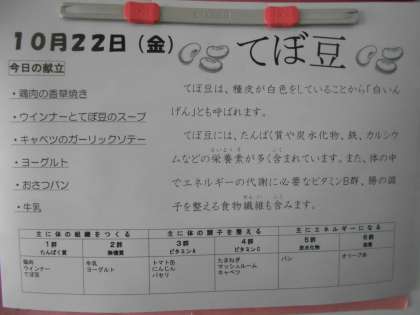 10月22日（金）
てぼ豆
今日の献立
・鶏肉の香草焼き
・ウインナーとてぼ豆のスープ
・キャベツのガーリックソテー
・ヨーグルト
・おさつパン
・牛乳
てぼ豆は、種皮が白色をしていることから「白いん
げん」とも呼ばれます。
てぼ豆には、たんぱく質や炭水化物、鉄、カルシウ
ムなどの栄養素が多く含まれています。また、体の中
でエネルギーの代謝に必要なビタミンB群、腸の調
子を整える食物繊維も含みます。
主に体の組織をつくる 主に体の調子を整える 主にエネルギーになる
1群 2群 3群 4群 5群 6群
たんぱく質 無機質 ビタミンA ビタミンC 炭水化物 脂質
鶏肉 牛乳 トマト缶 たまねぎ パン オリーブ油
ウインナー ヨーグルト にんじん マッシュルーム
てぼ豆 パセリ キャベツ